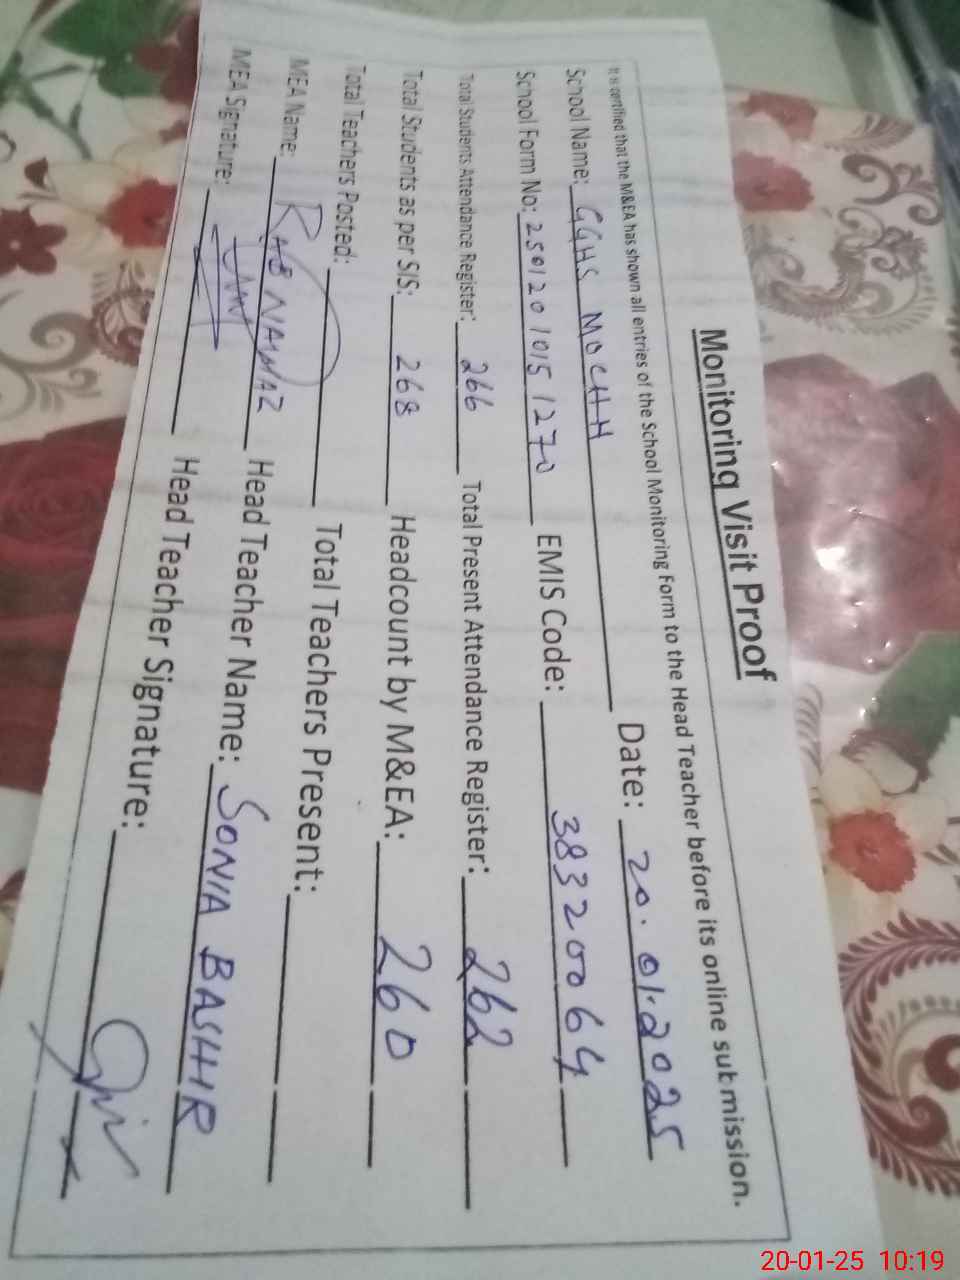 Monitoring Visit Proof
It is certified that the M&EA has shown all entries of the School Monitoring Form to the Head Teacher before its online submission.
School Name: GGHS MOCHH Date: 20.01.2025
School Form No: 2501201015 1270 EMIS Code: 38320064
Total Students Attendance Register: 266 Total Present Attendance Register: 262
Total Students as per SIS: 268 Headcount by M&EA: 260
Total Teachers Posted: Total Teachers Present:
MEA Name: RAB NAWAZ Head Teacher Name: SONIA BASHIR
MEA Signature: Head Teacher Signature:
20-01-25 10:19